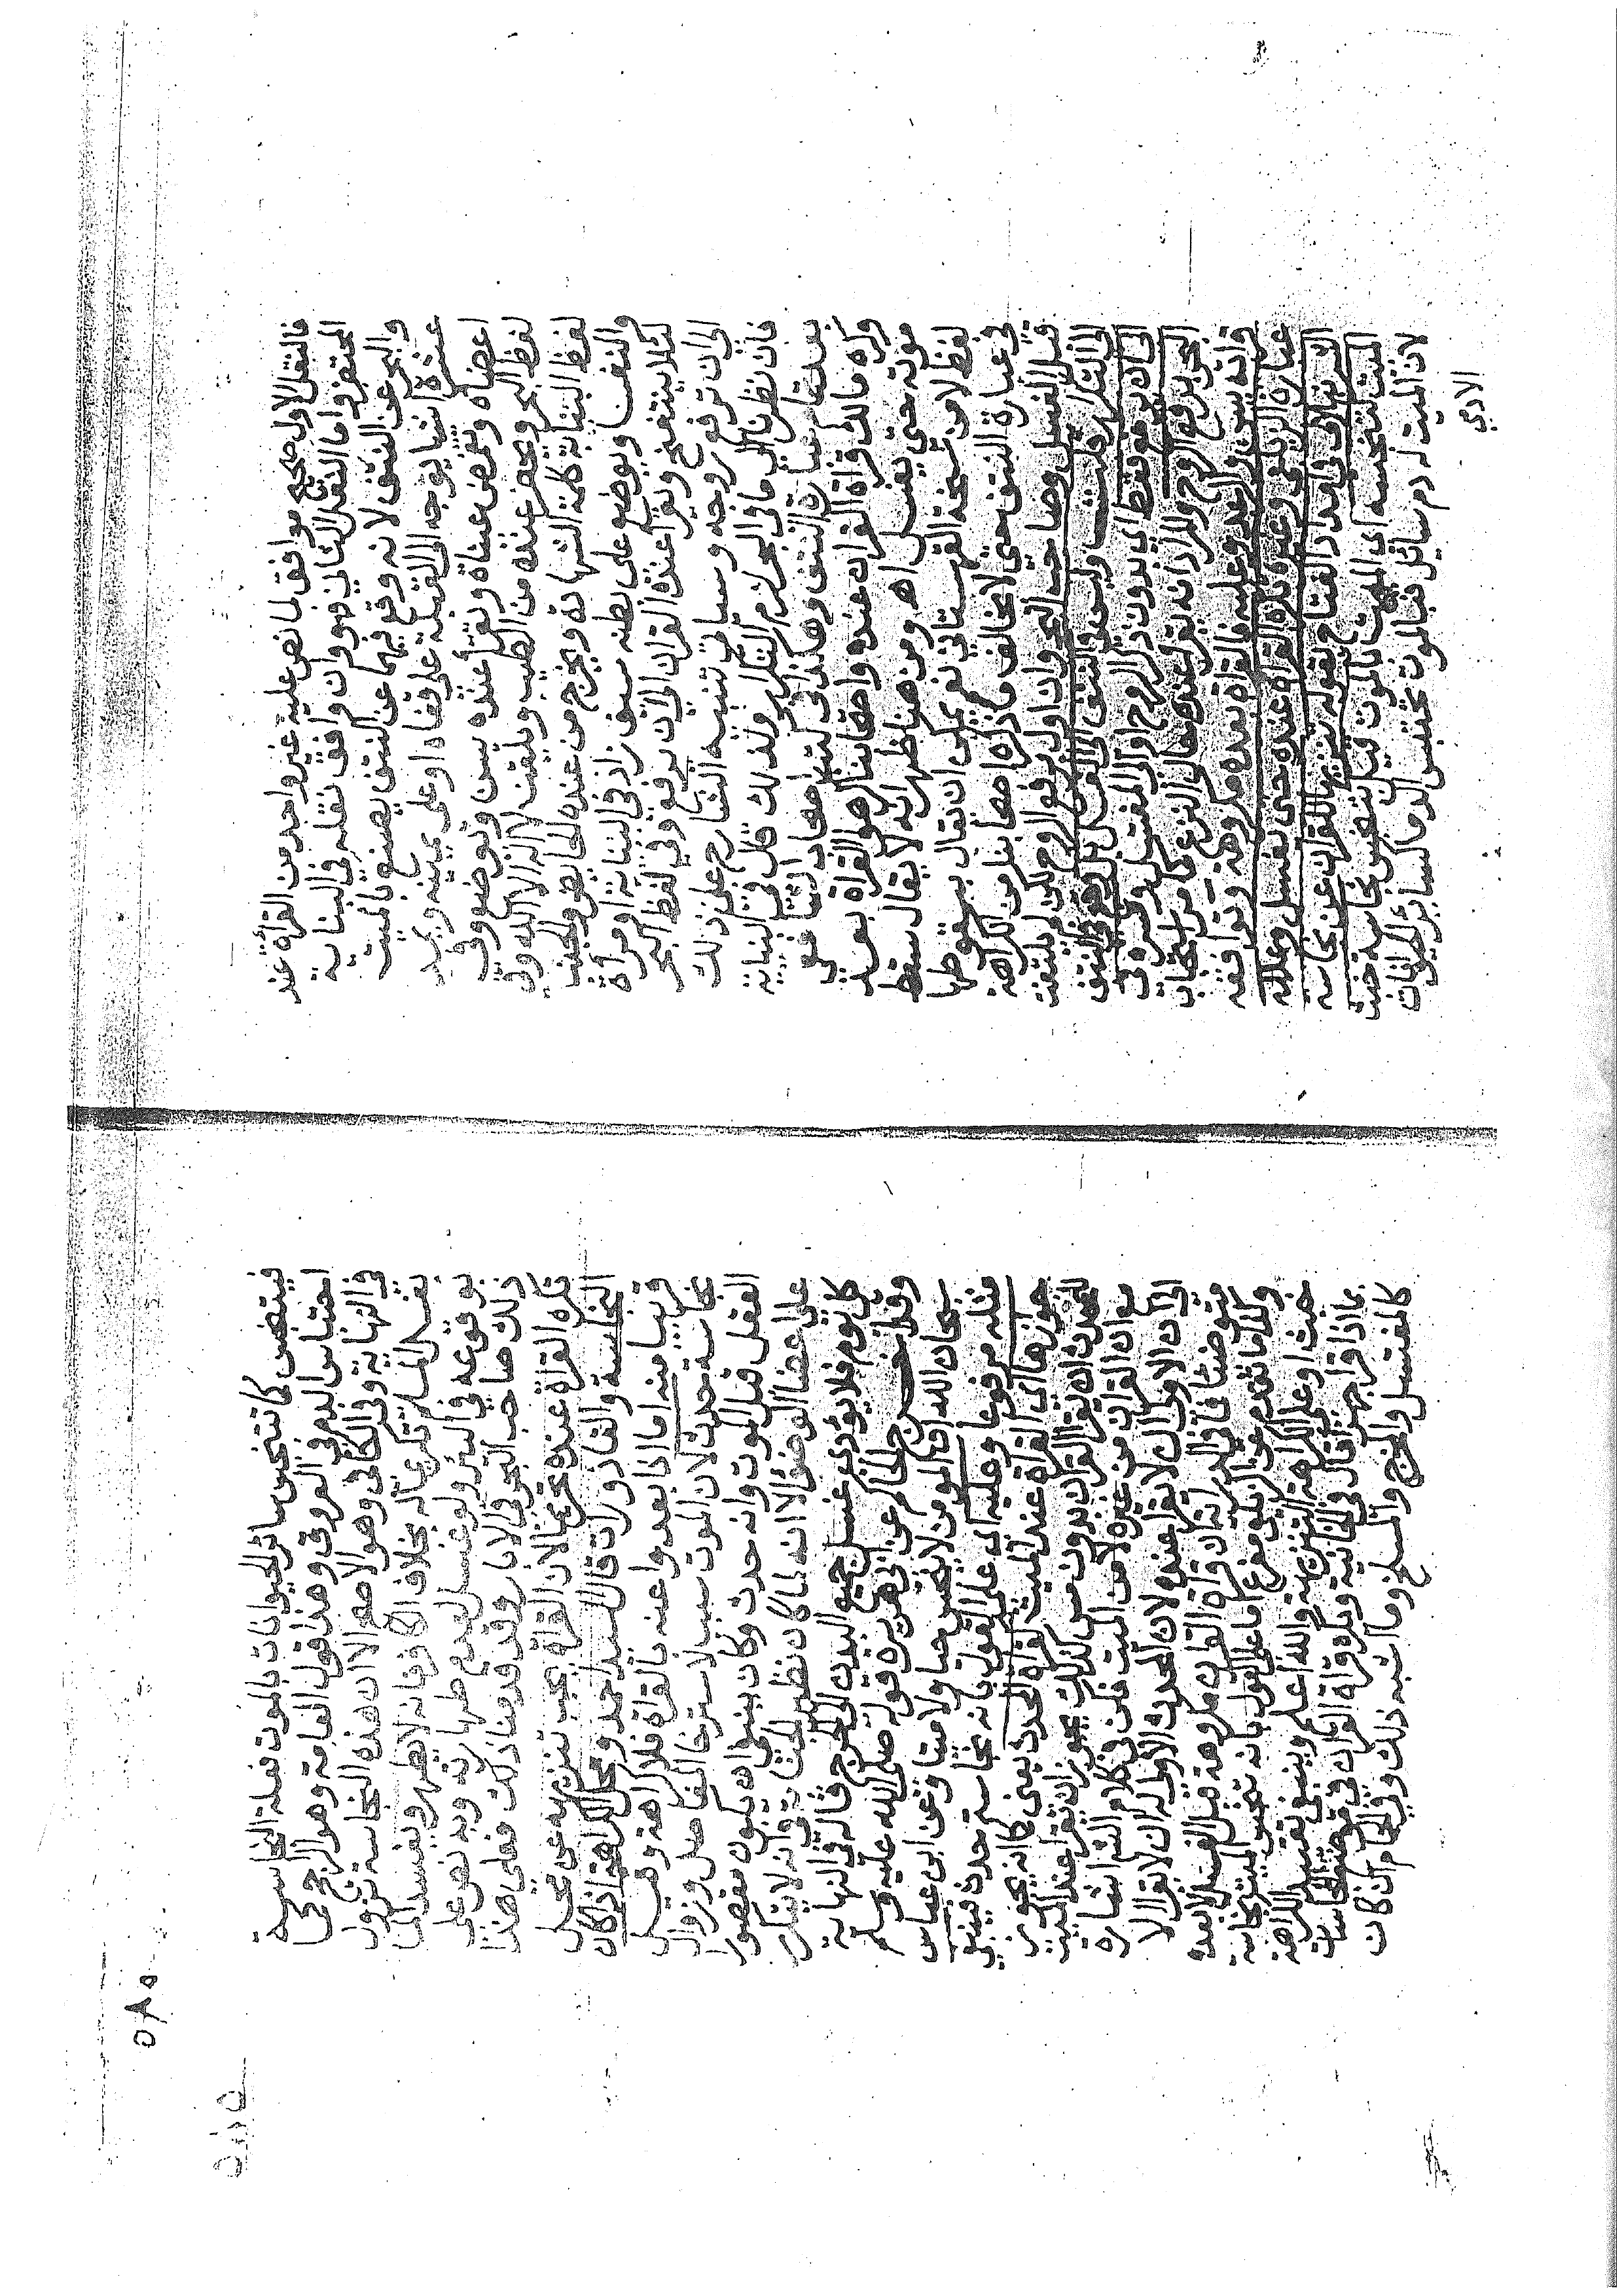 فالنقل الاول صحيح موافق لما نص عليه غير واحد من القراة عند
المحتضر واما النقل الثاني فهو وان وافق نقله في البناية
والبحر عن النتف لانه وقع فيهما عن النتف يصنع بالميت
عشرة اشيا يوجه الى القبلة على قفاه او على يمينه ويمد
اعضاه ويغمض عيناه ويقرأ عنده يس وتوضع وفي
لفظ البحر ويحضر عنده من الطيب ويلقن لا اله الا الله وفي
لفظ البناية كلمة الشهادة ويخرج من عنده الحايض والجنب
والنفسا ويوضع على بطنه سيف زاد في البناية او مرآة
لئلا ينتفخ ويقرأ عنده القران الى ان يرفع وفي لفظ البحر
الى ان ترفع روحه وسياتي تنبيه الشارح على ذلك
فان نظرنا الى ما في البحر لزم التكرار ولذلك قال في البناية
بعد تمام عبارة النتف وهكذا في كتب اصحاب الشافعي
وكره مالك قراة القران عنده واصحابنا كرهوا القراة بعد
موته حتى يغسل اهـ ومن هنا ظهر انه لا يقال سقط
لفظ لا من نسخة القهستاني نعم يمكن ان يقال بسقوطها
في عبارة النتف حتى لا يخالف ما ذكره اصحابنا من الكراهة
قبل الغسل وصاحب البحر وان اول يرفع الروح لكن لم يلتفت
اليه الشارح
الى ان يرفع فقط اي بدون ذكر الروح او الى المغتسل وفسره في
البحر برفع الروح والمراد انه يقرأ عنده حال النزع كما مر استحباب
قراة يس والرعد وعليه فالقراة بعده مكروهة وتوافقه
عبارة الزيلعي وغيره تكره القراة عنده حتى يغسل وعلله
الشرنبلالي في امداد الفتاح بقوله تنزيها للقران عن نجاسة
الميت لتنجسه اي الميت بالموت قيل تنجس نجاسة خبث
لان الميت له دم سائل فبالموت يحتبس الدم كسائر الحيوانات
الادمي
٥٨٥
فيتنجس كما تتنجس سائر الحيوانات بالموت فعلة النجاسة
احتباس الدم في العروق وهذا قول العامة وهو الارجح كما
في النهاية وفي الكافي وهو الاصح الا ان هذه النجاسة تزول
بغسل المسلم تكريما له بخلاف الكافر فانه لا يطهر ويفسد الما
بوقوعه في البئر ولو غسل لعدم طهارته وبه نص على
ذلك صاحب البحر في الابار وقد قدمنا ذلك فعلى هذا
تكره القراة عنده تحريما لان القراة يجب تنزيهه عن محل
النجاسة والقاذورات قال السيد احمد ومحل الكراهة اذا كان
قريبا منه اما اذا بعدوا عنه بالقراة فلا كراهة وقيل
نجاسة حدث لان الموت سبب لاسترخا المفاصل وزوال
العقل قبل الموت وانه حدث وكان ينبغي ان يكون مقصورا
على اعضا الوضوء الا انه لما كان نظير الجنابة وانه لا يتكرر
كل يوم فلا يؤدي غسل جميع البدن الى الحرج قاله في النهاية
وقد اخرج الحاكم عن ابي هريرة قوله صلى الله عليه وسلم
سبحان الله ان المومن لا ينجس حيا ولا ميتا وعن ابن عباس
مثله مرفوعا وعليه اي على القول بانه نجاسة حدث فينبغي
جوازها اي القراة عند الميت كقراة المحدث يعني كما انه يجوز
للمحدث ان يقرأ القران بدون مس كذلك يجوز ان يقرأ عند الميت
سوا كان القران من غيره لا من الميت
اذ كان الاولى ان لا يقرأ عنده لان المحدث الاولى له ان لا يقرأ الا
متوضئا
وكلما تقدم عن الزيلعي مفرع اما على القول بانه تنجس الميت نجاسة
خبث او على الكراهة التنزيهية والله اعلم وينبغي تقييد الكراهة
بما اذا قرأ جهرا قال في الخانية وتكره قراة القران في موضع النجاسات
كالمغتسل والمخرج والمسلخ وما اشبه ذلك وفي الحمام ان كان